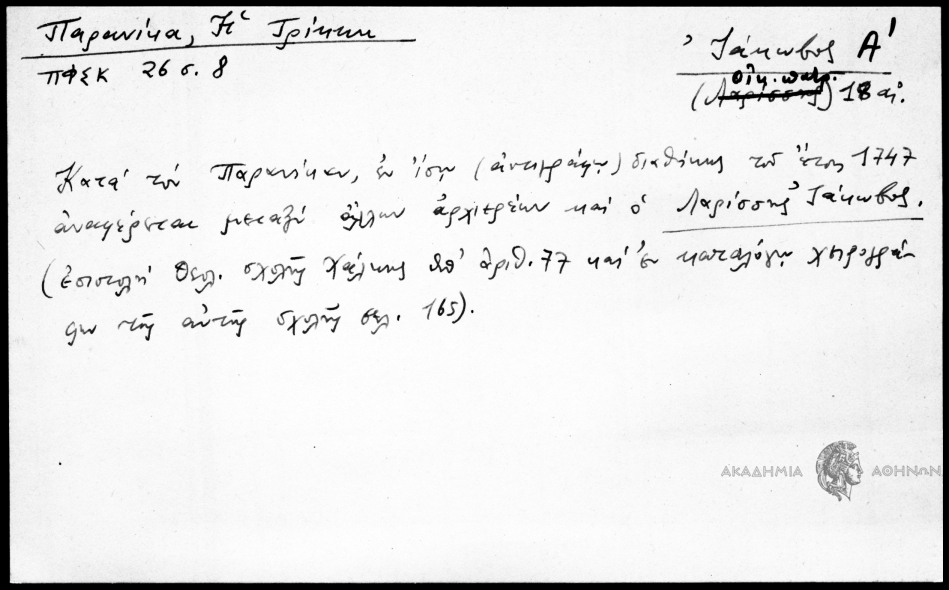 Παρανίκα, Ἡ Τρίκκη
ΠΦΣΚ 26 σ. 8
Ἰάκωβος Α'
οἰκ. πατρ.
(Λαρίσσης) 18 αἰ.
Κατά τόν Παρανίκαν, ἐν ἴσῳ (ἀντιγράφῳ) διαθήκης τοῦ ἔτους 1747
ἀναφέρεται μεταξύ ἄλλων ἀρχιερέων καί ὁ Λαρίσσης Ἰάκωβος.
(ἐπιστολή Θεολ. σχολῆς Χάλκης ὑπ' ἀριθ. 77 καί ἐν καταλόγῳ χειρογρά-
φων τῆς αὐτῆς σχολῆς σελ. 165).
ΑΚΑΔΗΜΙΑ ΑΘΗΝΩΝ